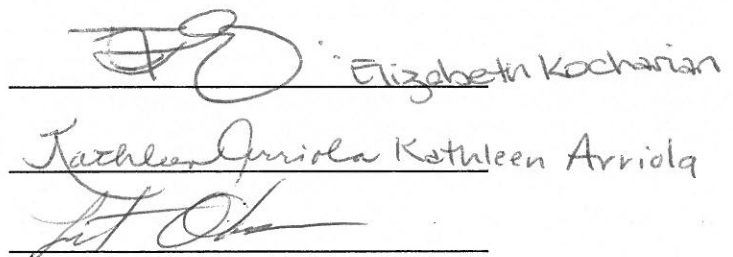 Elizabeth Kocharian
Kathleen Arriola Kathleen Arriola